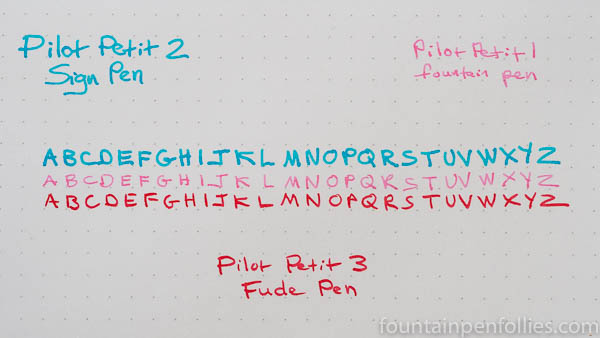 Pilot Petit 2
Sign Pen
Pilot Petit 1
fountain pen
ABCDEFGHIJKL MNOPQRSTUVWXYZ
ABCDEFGHIJKL MNOPQRSTUVWXYZ
ABCDEFGHIJKL MNOPQRSTUVWXYZ
Pilot Petit 3
Fude Pen
fountainpenfollies.com